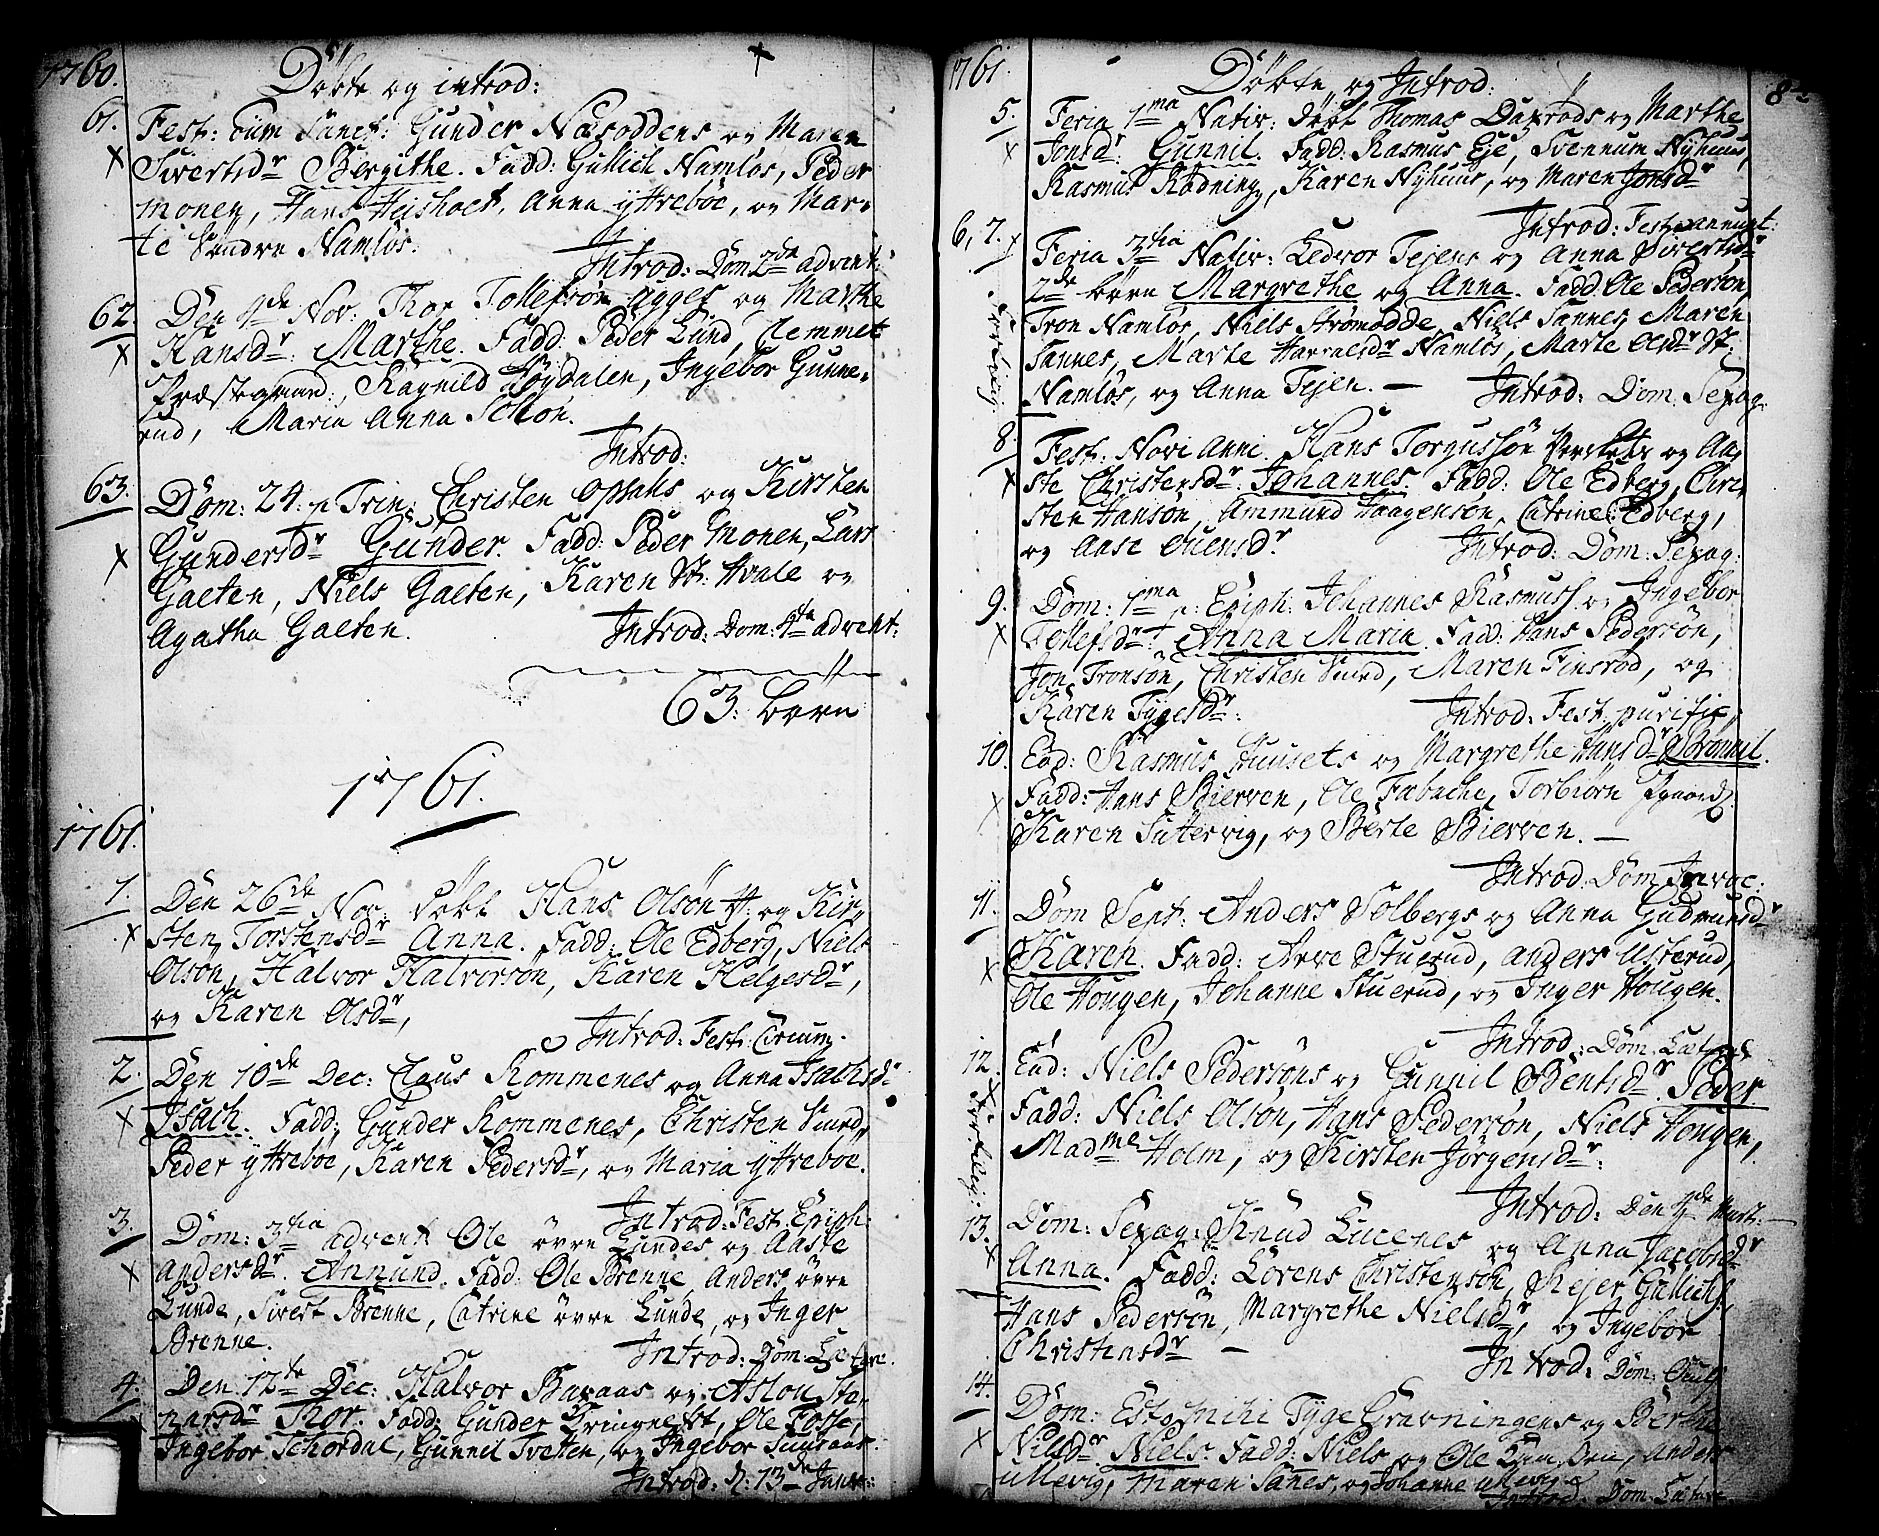 1760.
Döbte og introd:
61. Fest: Oium Sanct: Gunder Næsoddens og Maren
Sivertsdr Bergithe. Fadd: Gullich Namløs, Peder
Monen, Hans Heishoet, Anna Yttreböe, og Mar-
te Söndre Namløs.
Introd: Dom 2de advent:
62. Den 4de Nov: Thor Tollefsön Agges og Marthe
Hansdr: Marthe. Fadd: Peder Lund, Clemmet
Præstegaard:, Ragnild Høydalen, Ingebor Gunne-
rud, Maria Anna Schiön.
Introd:
63. Dom: 24. p. Trin: Christen Opsals og Kirsten
Gundersdr Gunder. Fadd: Peder Monen, Lars
Gaeten, Niels Gaeten, Karen St: Hvale og
Agatha Gaeten.
Introd: Dom: 4ta advent:
63: börn
1761.
1761.
1. Den 26de Nov: döbt Hans Olsön og Kir-
sten Torstensdr Anna. Fadd: Ole Edberg, Niels
Olsön, Halvor Halvorsön, Karen Helgesdr,
og Karen Olsdr,
Introd: Fest: Circum.
2. Den 10de Dec: Claus Kommenes og Anna Isachsdr
Isach. Fadd: Gunder Kommenes, Christen Smed,
Peder Yttreböe, Karen Pedersdr, og Maria Yttreboe.
Introd: Fest: Epiph:
3. Dom: 3tia advent: Ole övre Lundes og Aaste
Andersdr. Annund. Fadd: Ole Brenne, Anders övre
Lunde, Sivert Brenne, Catrine övre Lunde, og Inger
Brenne.
Introd: Dom: Lætare.
4. Den 12te Dec: Halvor Baraas og Aslou Ha-
varsdr Thor. Fadd: Gunder, Ole Foss,
Ingebor Schordal, Gunnil Tveten, og Ingebor
Introd: d: 13de Janv:
1761.
Döbte og Introd:
5. Feria 1ma Nativ: döbt Thomas Daxrods og Marthe
Jonsdr: Gunnil. Fadd: Rasmus Eje, Svennum Nyhuus,
Rasmus Rödning, Karen Nyhuus, og Maren Jonsdr
Introd: Fest: annunt:
6, 7. Feria 3tia Nativ: Ledvor Tejens og Anna Sivertsdr
2de börn Margrethe og Anna. Fadd: Ole Pedersön,
Tron Namløs, Niels Strömodde, Niels Sannes, Maren
Sannes, Marte Harvalsdr Namløs, Marte Olsdr St:
Namløs, og Anna Tejen. — Introd: Dom: Sexag:
8. Fest: Novi Anni. Hans Torgussön og Aa-
ste Christensdr: Johannes. Fadd: Ole Edberg, Chri-
sten Hansön, Ammund Haagensön, Catrine Edberg,
og Aase Ouensdr. Introd: Dom: Sexag:
9. Dom: 1ma p: Epiph: Johannes Rasmuss. og Ingebor
Tollefsdr: Anna Maria. Fadd: Hans Pedersön,
Jon Tronsön, Christen Smed, Maren Finsrod, og
Karen Tygesdr: Introd: Fest: purific:
10. Eod: Rasmus Huusets og Margrethe Hansdr Brönnil.
Fadd: Hans Bierven, Ole Fæbache, Torbiörn
Karen Suttervig, og Berte Bierven. —
Introd: Dom Invoc:
11. Dom Sept: Anders Solbergs og Anna Gudmundsdr
Karen. Fadd: Arve Stuerud, Anders Usterud,
Ole Hougen, Johanne Stuerud, og Inger Hougen.
Introd: Dom: Lætare
12. Eod: Niels Pedersöns og Gunnil Bentsdr. Peder
Fadd: Niels Olsön, Hans Pedersön, Niels Hougen,
Madme Holm, og Kirsten Jörgensdr:
Introd: Den Marts: —
13. Dom: Sexag: Knud Lucenes og Anna Jacobsdr
Anna. Fadd: Lörens Christensön, Rejer Gullichs,
Hans Pedersön, Margrethe Nielsdr, og Ingebor
Christensdr —
Introd: Dom: Oculi
14. Dom: Esto mihi Tyge Gravningens og Berthe
Nilsdr. Niels. Fadd: Niels og Ole, Anders
Ullevig, Maren Sanes, og Johanne Ullevig
Introd: Dom: Lætare.